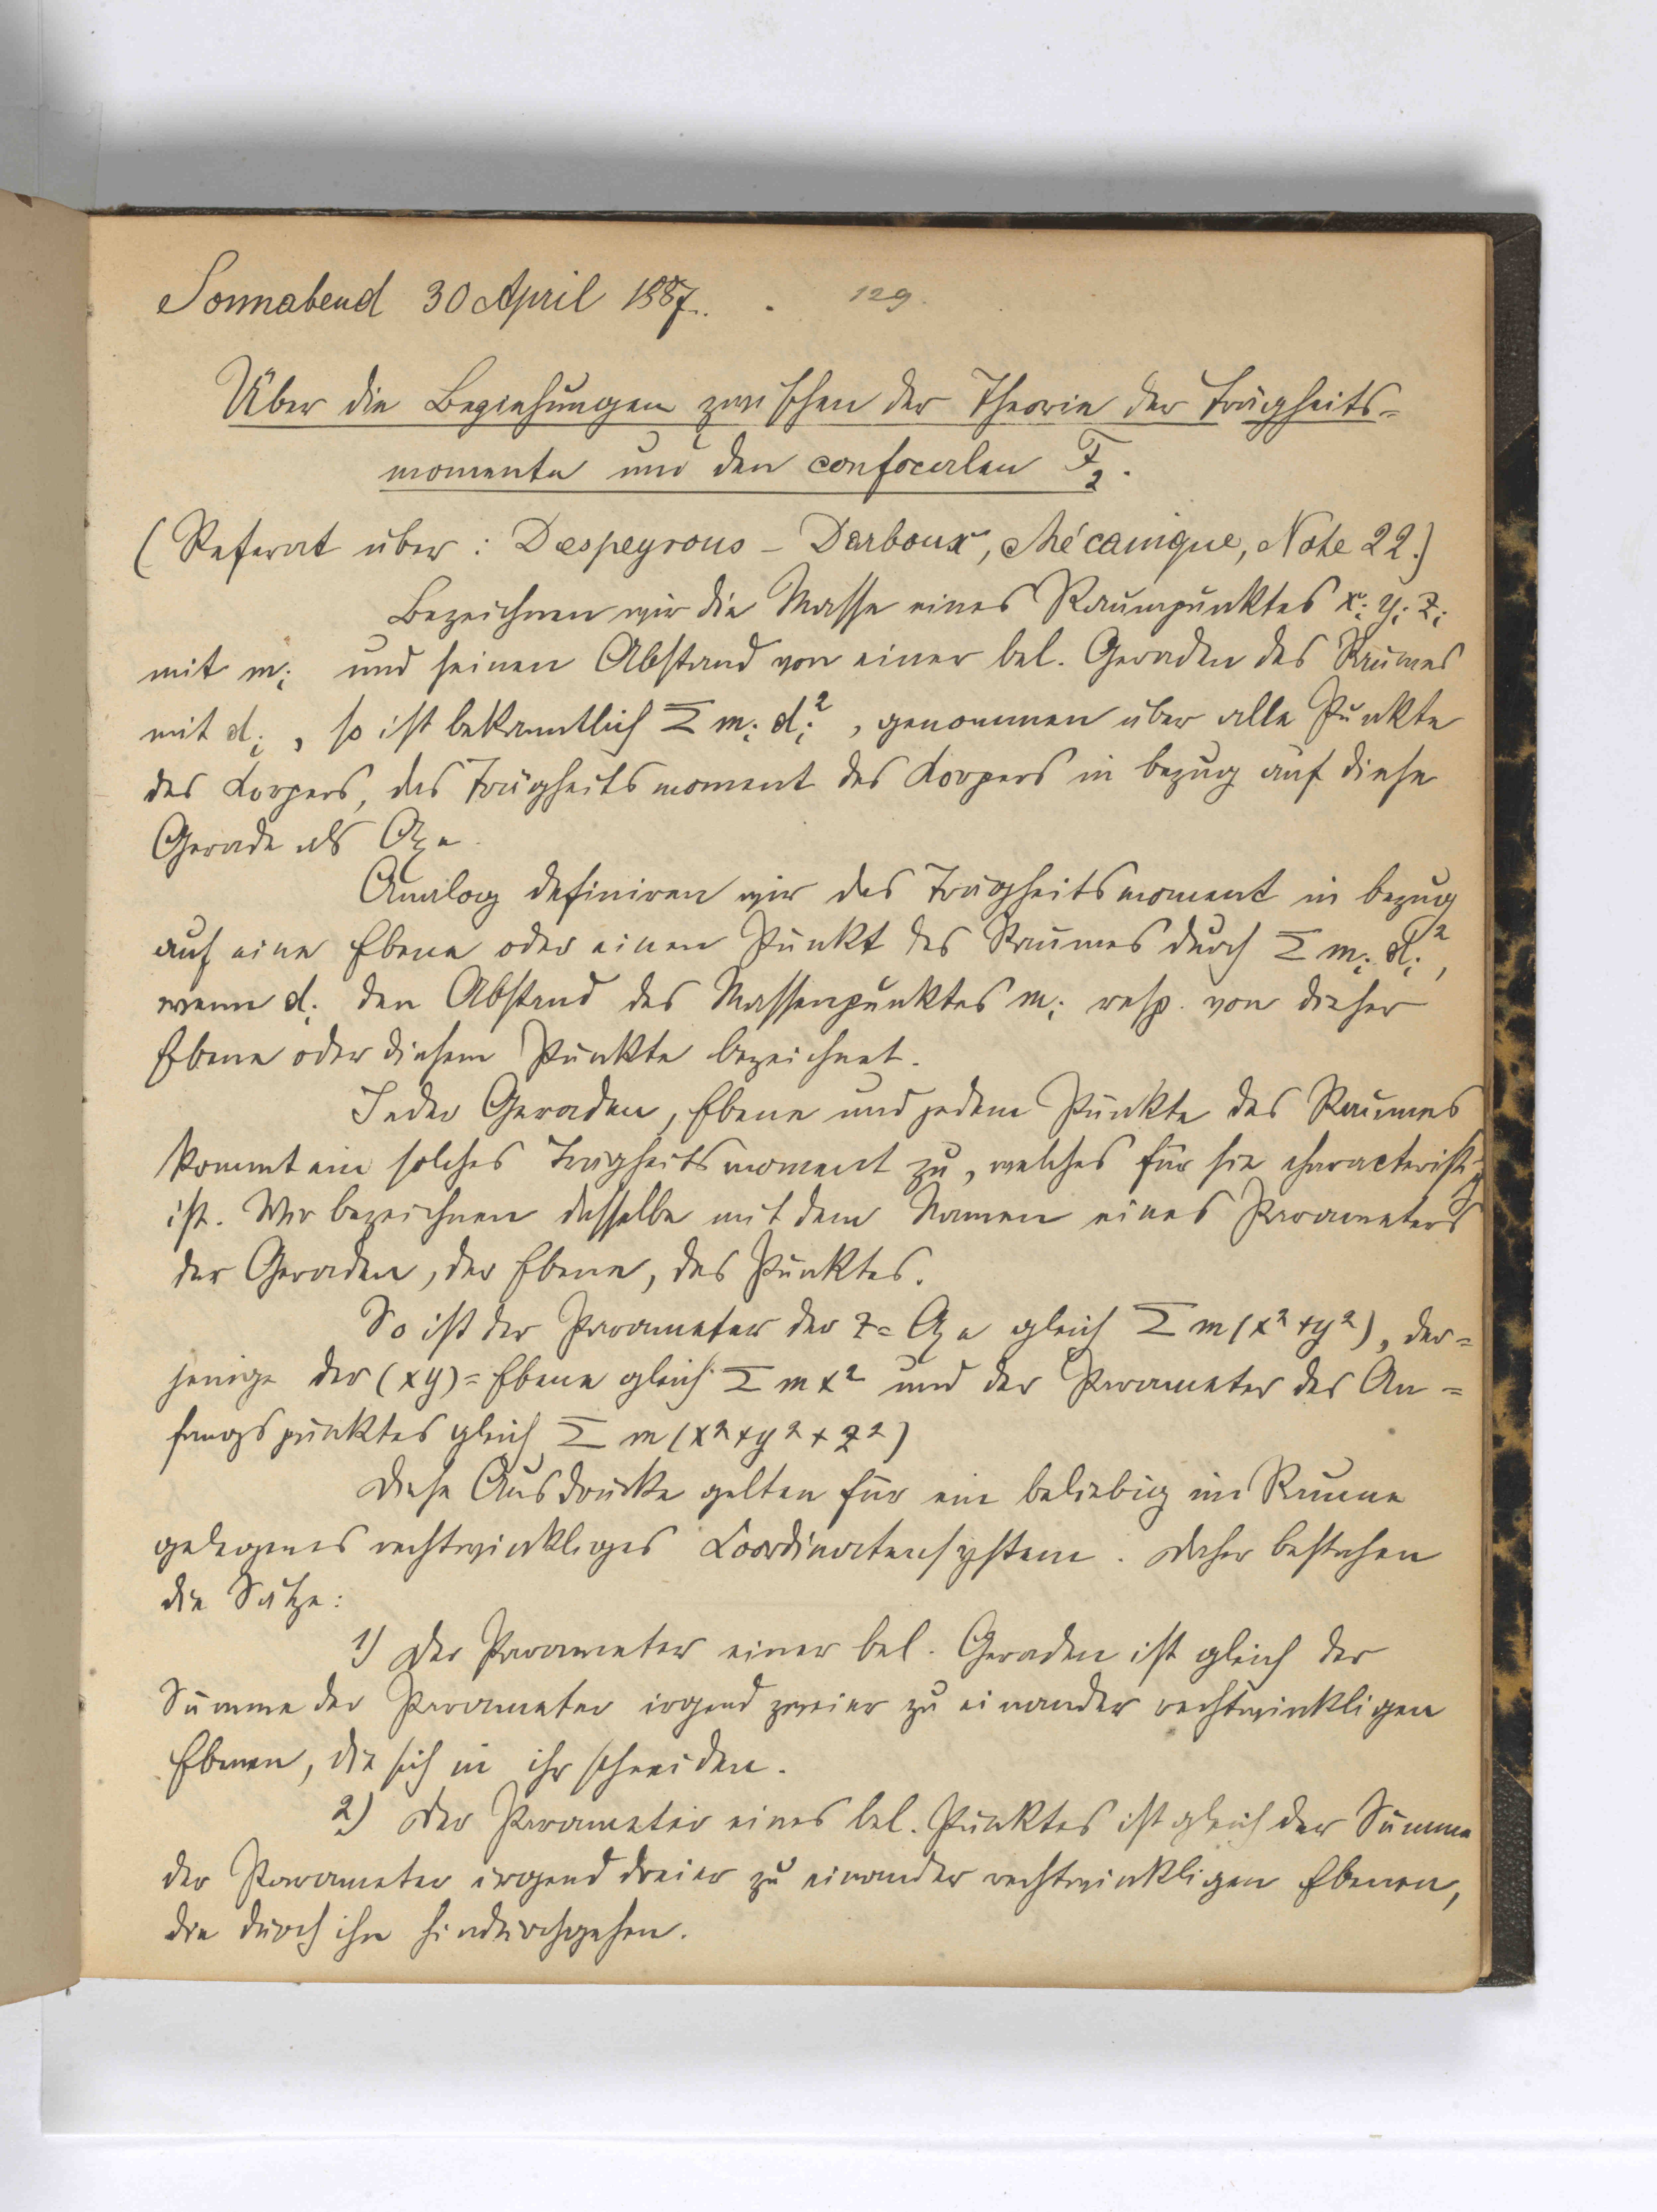 Sonnabend 30 April 1887. 129.
Über die Beziehungen zwischen der Theorie der Trägheits-
momente und den confocalen F₂.
(Referat über: Despeyrous – Darboux, Mécanique, Note 22.)
Bezeichnen wir die Masse eines Raumpunktes xᵢ yᵢ zᵢ
mit mᵢ und seinen Abstand von einer bel. Geraden des Raumes
mit dᵢ, so ist bekanntlich Σ mᵢ dᵢ², genommen über alle Punkte
des Körpers, das Trägheitsmoment des Körpers in bezug auf diese
Gerade als Axe.
Analog definiren wir das Trägheitsmoment in bezug
auf eine Ebene oder einen Punkt des Raumes durch Σ mᵢ dᵢ²,
wenn dᵢ den Abstand des Massenpunktes mᵢ resp. von dieser
Ebene oder diesem Punkte bezeichnet.
Jeder Geraden, Ebene und jedem Punkte des Raumes
kommt ein solches Trägheitsmoment zu, welches für sie
ist. Wir bezeichnen dasselbe mit dem Namen eines Parameters
der Geraden, der Ebene, des Punktes.
So ist der Parameter der z=Axe gleich Σ m (x² + y²), der=
jenige der (xy)=Ebene gleich Σ m x² und der Parameter des An=
fangspunktes gleich Σ m (x² + y² + z²)
Diese Ausdrücke gelten für ein beliebig im Raume
gelegenes rechtwinkliges Coordinatensystem. Daher bestehen
die Sätze:
1) Der Parameter einer bel. Geraden ist gleich der
Summe der Parameter irgend zweier zu einander rechtwinkligen
Ebenen, die sich in ihr schneiden.
2) Der Parameter eines bel. Punktes ist gleich der Summe
der Parameter irgend dreier zu einander rechtwinkligen Ebenen,
die durch ihn hindurchgehen.